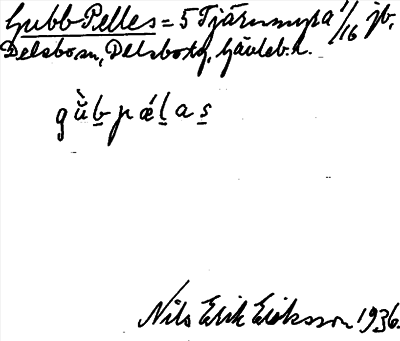 Gubb-Pelles = 5 Tjärnmyra 1/16 jb,
Delsbo sn, Delsbo tg, Gävleb. l.
gu�b pǽlas
Nils Erik Eriksson 1936.